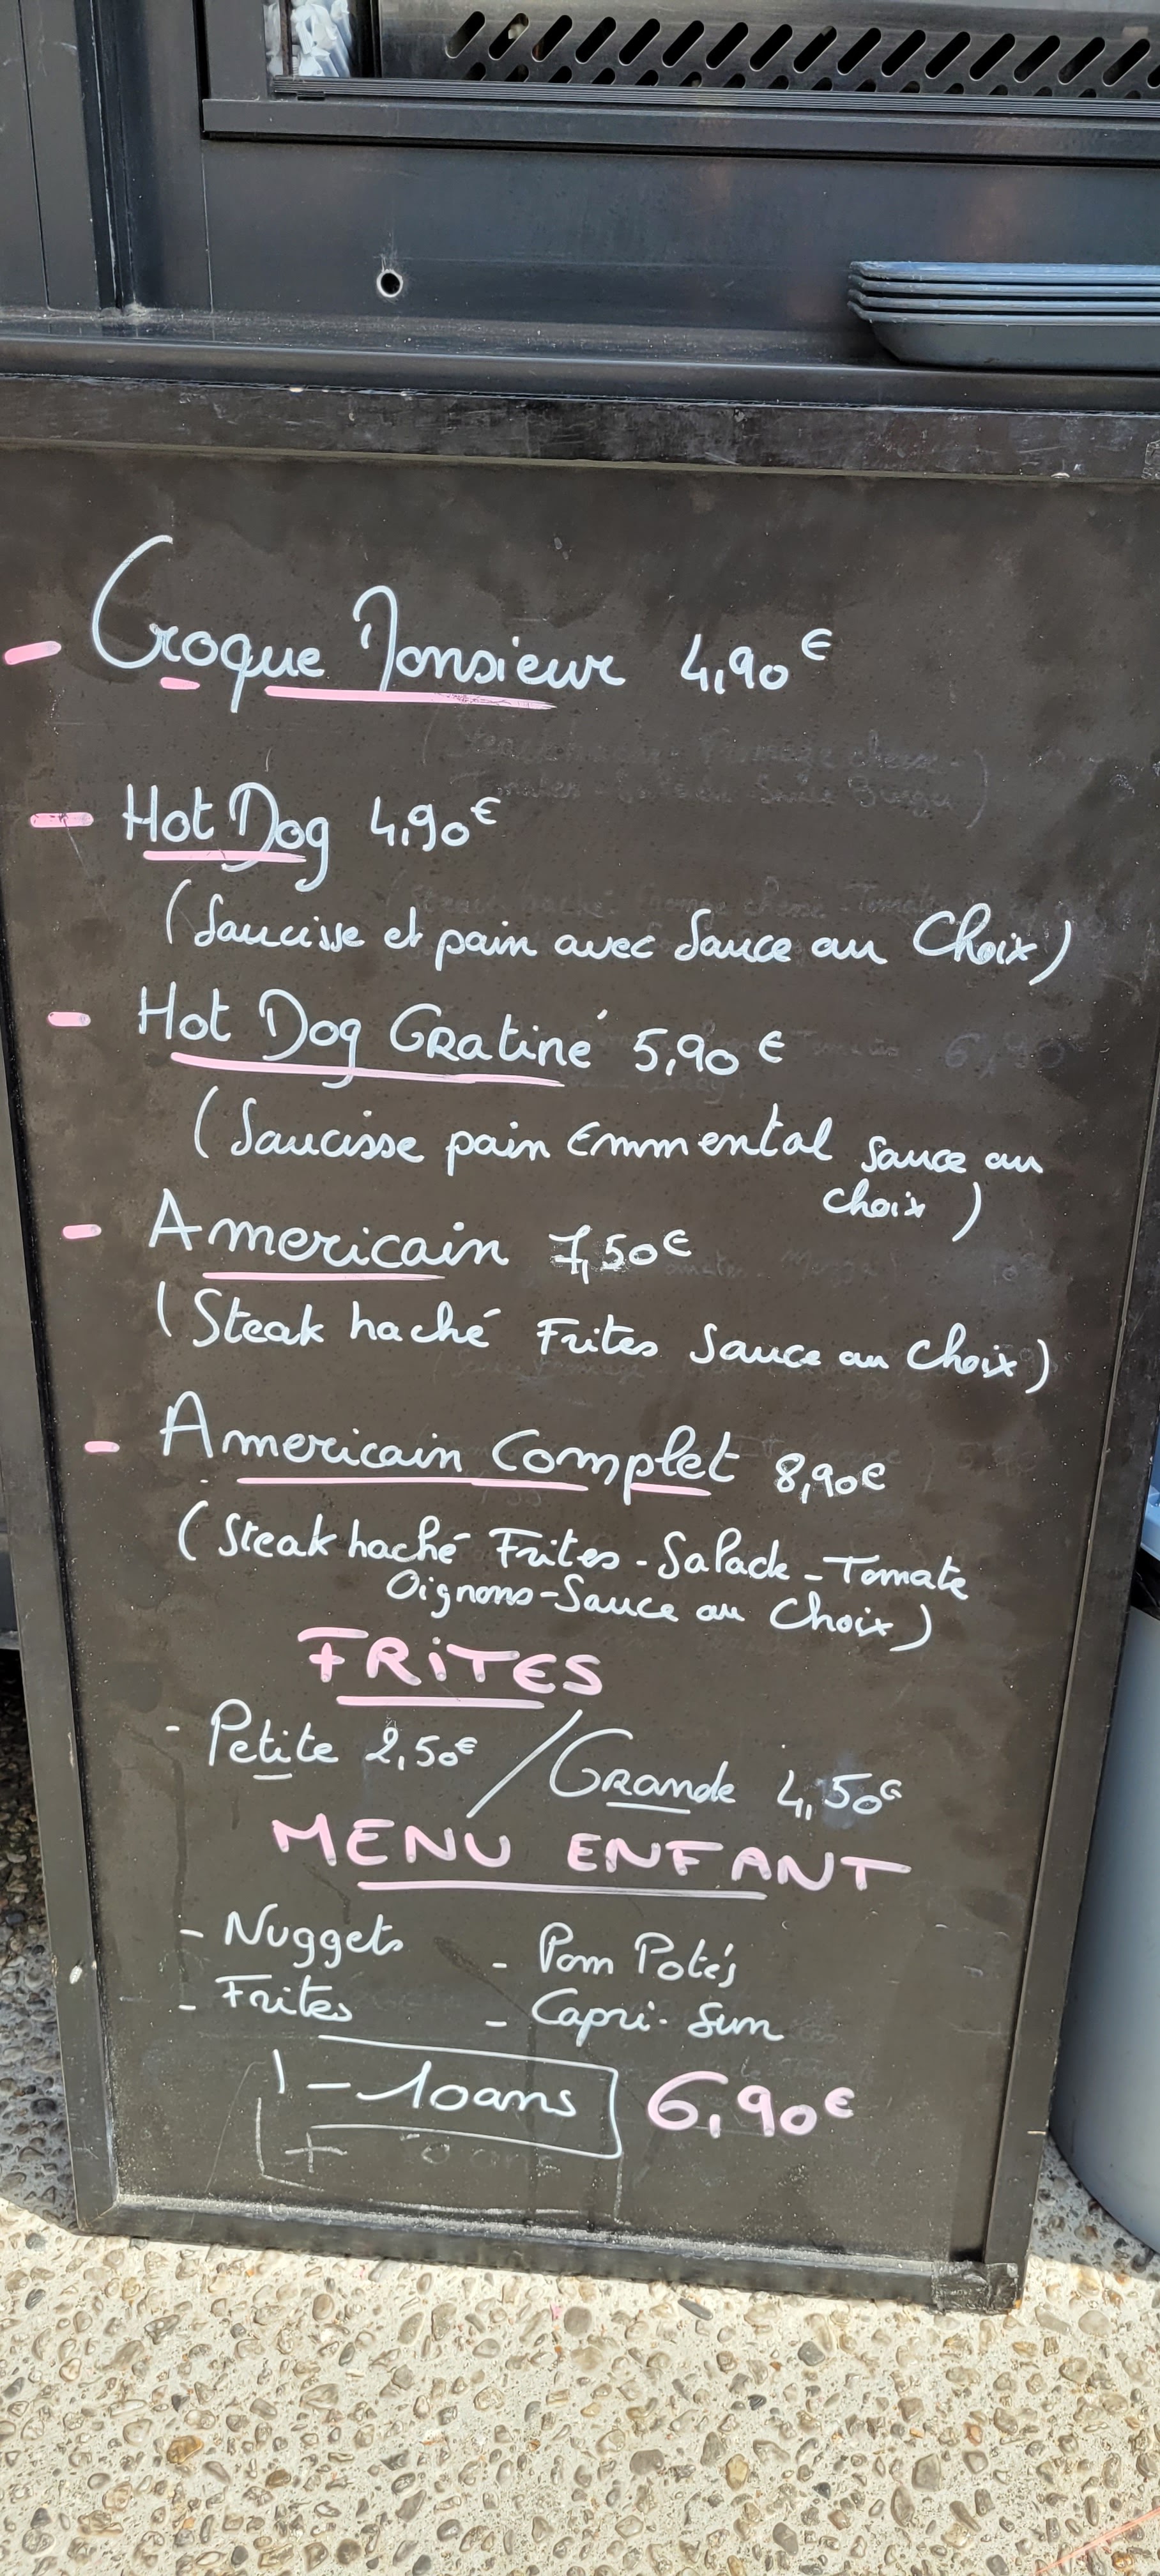 - Croque Monsieur 4,90€
- Hot Dog 4,90€
(Saucisse et pain avec Sauce au Choix)
- Hot Dog Gratiné 5,90€
(Saucisse pain Emmental Sauce au
choix)
- Americain 7,50€
(Steak haché Frites Sauce au Choix)
- Americain Complet 8,90€
(Steak haché Frites - Salade - Tomate
Oignons - Sauce au Choix)
FRITES
- Petite 2,50€ / Grande 4,50€
MENU ENFANT
- Nuggets - Pom Potés
- Frites - Capri-Sun
- 10ans 6,90€